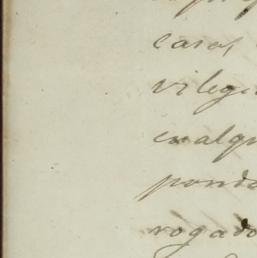 casos,
vilegi
cualqu
ponda
rogado